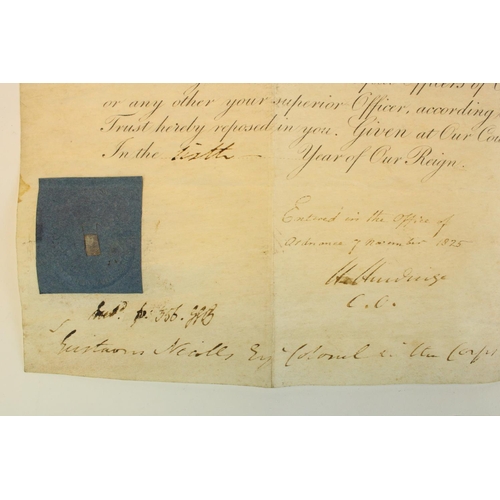 Officers of
or any other your superior Officer, according
Trust hereby reposed in you. Given at Our Cou
In the Sixth Year of Our Reign.
Entered in the Office of
Ordnance 7 November 1825
H Hardinge
C.O.
p: 356.
Gustavus Nicolls Esqr Colonel in the Corps